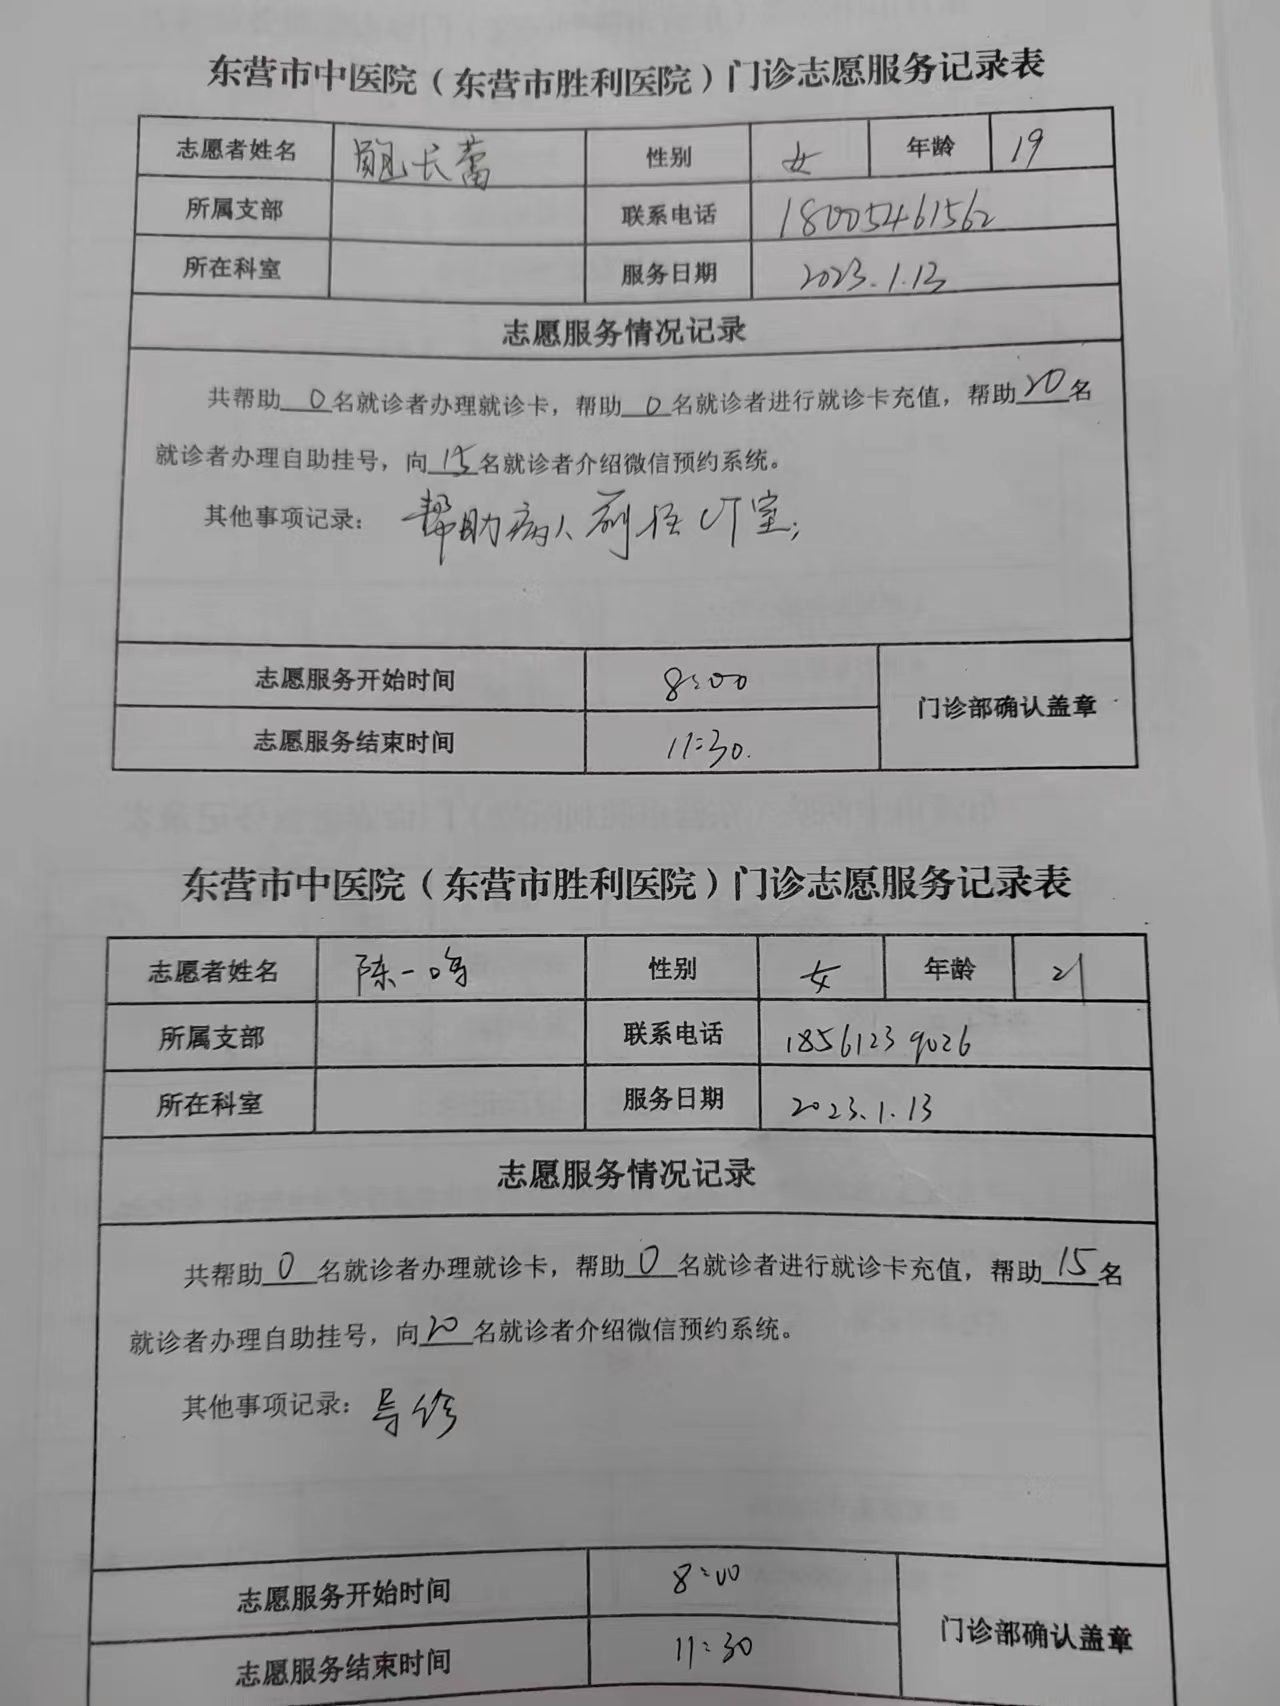 东营市中医院（东营市胜利医院）门诊志愿服务记录表
志愿者姓名 鲍长蕾 性别 女 年龄 19
所属支部 联系电话 18005461562
所在科室 服务日期 2023.1.13
志愿服务情况记录
共帮助0名就诊者办理就诊卡，帮助0名就诊者进行就诊卡充值，帮助20名
就诊者办理自助挂号，向15名就诊者介绍微信预约系统。
其他事项记录：帮助病人前往CT室；
志愿服务开始时间 8:00
门诊部确认盖章
志愿服务结束时间 11:30.
东营市中医院（东营市胜利医院）门诊志愿服务记录表
志愿者姓名 陈一鸣 性别 女 年龄 21
所属支部 联系电话 18561239026
所在科室 服务日期 2023.1.13
志愿服务情况记录
共帮助0名就诊者办理就诊卡，帮助0名就诊者进行就诊卡充值，帮助15名
就诊者办理自助挂号，向20名就诊者介绍微信预约系统。
其他事项记录：导诊
志愿服务开始时间 8:00
门诊部确认盖章
志愿服务结束时间 11:30